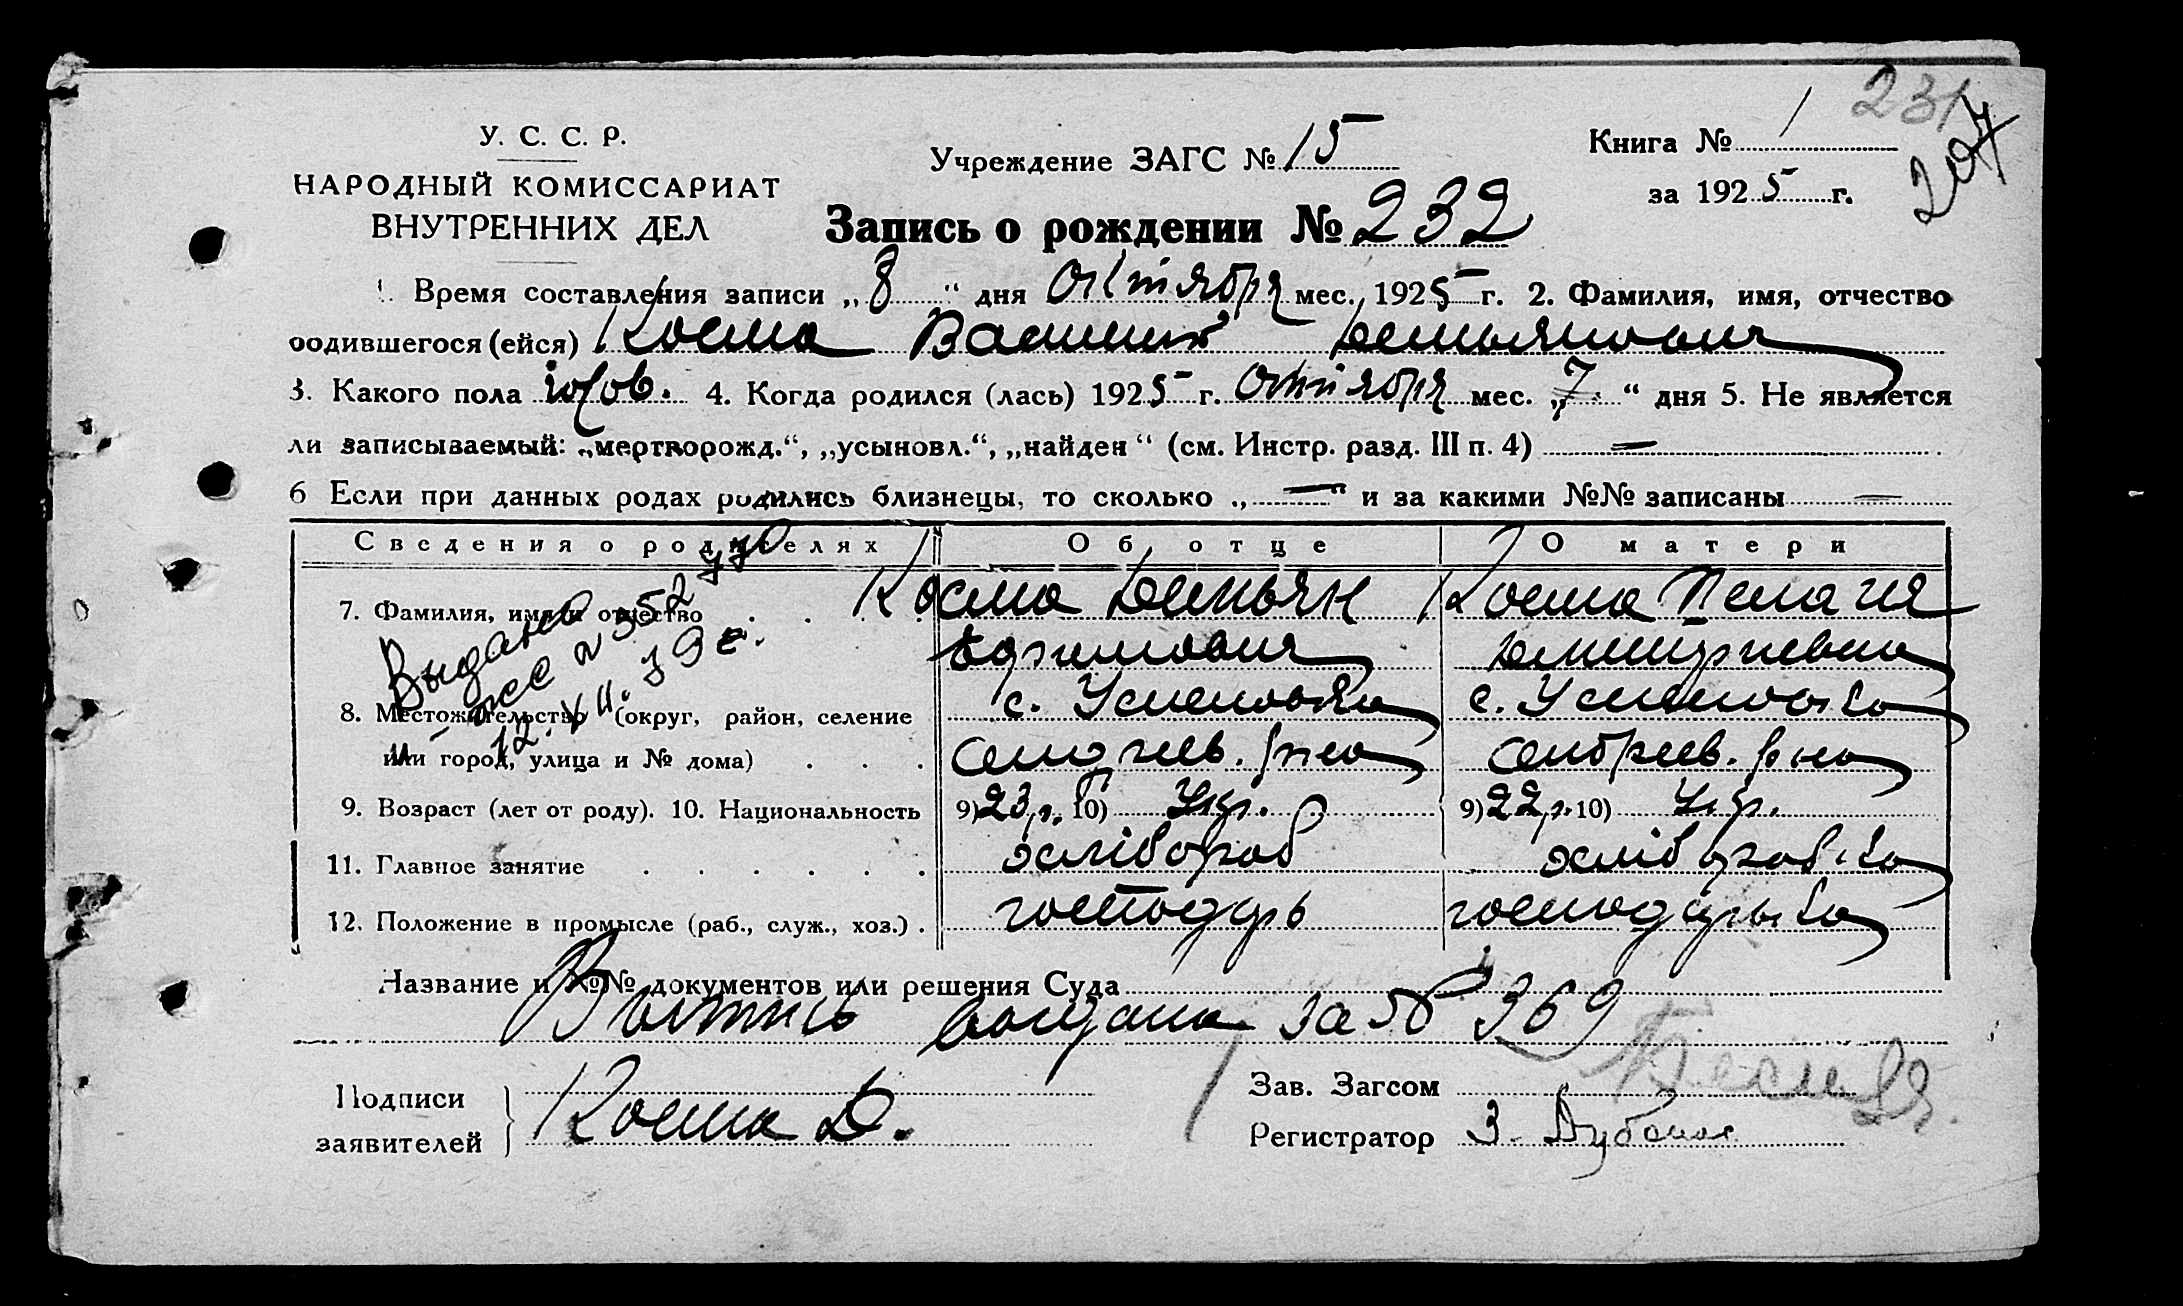 231
207
У. С. С. Р.
НАРОДНЫЙ КОМИССАРИАТ
ВНУТРЕННИХ ДЕЛ
Учреждение ЗАГС № 15
Книга № 1
за 1925 г.
Запись о рождении № 232
1. Время составления записи „8“ дня октября мес. 1925 г. 2. Фамилия, имя, отчество
родившегося (ейся) Косма Василий Демьянович
3. Какого пола чолов. 4. Когда родился (лась) 1925 г. октября мес. „7“ дня 5. Не является
ли записываемый: „мертворожд.“, „усыновл.“, „найден“ (см. Инстр. разд. III п. 4) —
6 Если при данных родах родились близнецы, то сколько „—“ и за какими №№ записаны —
Сведения о родителях Об отце О матери
7. Фамилия, имя и отчество Косма Демьян Косма Пелагия
Дмитриевна
8. Местожительство (округ, район, селение с. Успеновка с. Успеновка
или город, улица и № дома)
9. Возраст (лет от роду). 10. Национальность 9) 23 р. 10) Укр. 9) 22 р. 10) Укр.
11. Главное занятие хлібороб хліборобка
12. Положение в промысле (раб., служ., хоз.) господарь господарька
Выдано
12.VII.39 г.
Название и №№ документов или решения Суда
Выпись выдана за № 369
Подписи
заявителей
Косма Д.
Зав. Загсом
Регистратор З.